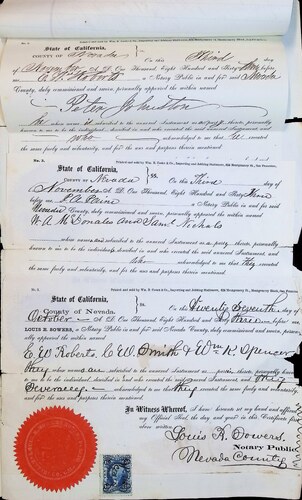 State of California,
COUNTY OF Nevada } SS.
On this Third day
of November A. D. One Thousand, Eight Hundred and Sixty Three before
me a Notary Public in and for said Nevada
County, duly commissioned and sworn, personally appeared the within named
Peter Johnston
personally known
to me to be the individual described in and who executed the annexed Instrument and
who acknowledged to me that he executed
the same freely and voluntarily, and for the uses and purposes therein mentioned
State of California,
COUNTY OF Nevada } SS.
On this Third day of
November A. D. One Thousand, Eight Hundred and Sixty Three
before me a Notary Public in and for said
Nevada County, duly commissioned and sworn, personally appeared the within named
W. A. McDonales and Saml Nichols
whose names are subscribed to the annexed Instrument as party thereto, personally
known to me to be the individuals described in and who executed the said annexed Instrument, and
who acknowledged to me that they executed
the same freely and voluntarily, and for the uses and purposes therein mentioned.
State of California,
County of Nevada. } SS.
On this Twenty Seventh day of
October A. D. One Thousand, Eight Hundred and Sixty Three before me,
LOUIS R. SOWERS, a Notary Public in and for said Nevada County, duly commissioned
and sworn, personally appeared the within named
E. W. Roberts, C. W. Smith & Wm K. Spencer
whose names are subscribed to the annexed Instrument as parties thereto, personally known
to me to be the individuals described in and who executed the said annexed Instrument, and they
Severally acknowledged to me that they executed the same freely and voluntarily,
and for the uses and purposes therein mentioned.
In Witness Whereof, I have hereunto set my hand and affixed
my Official Seal the day and year in this Certificate first
above written.
Louis R. Sowers
Notary Public
Nevada County